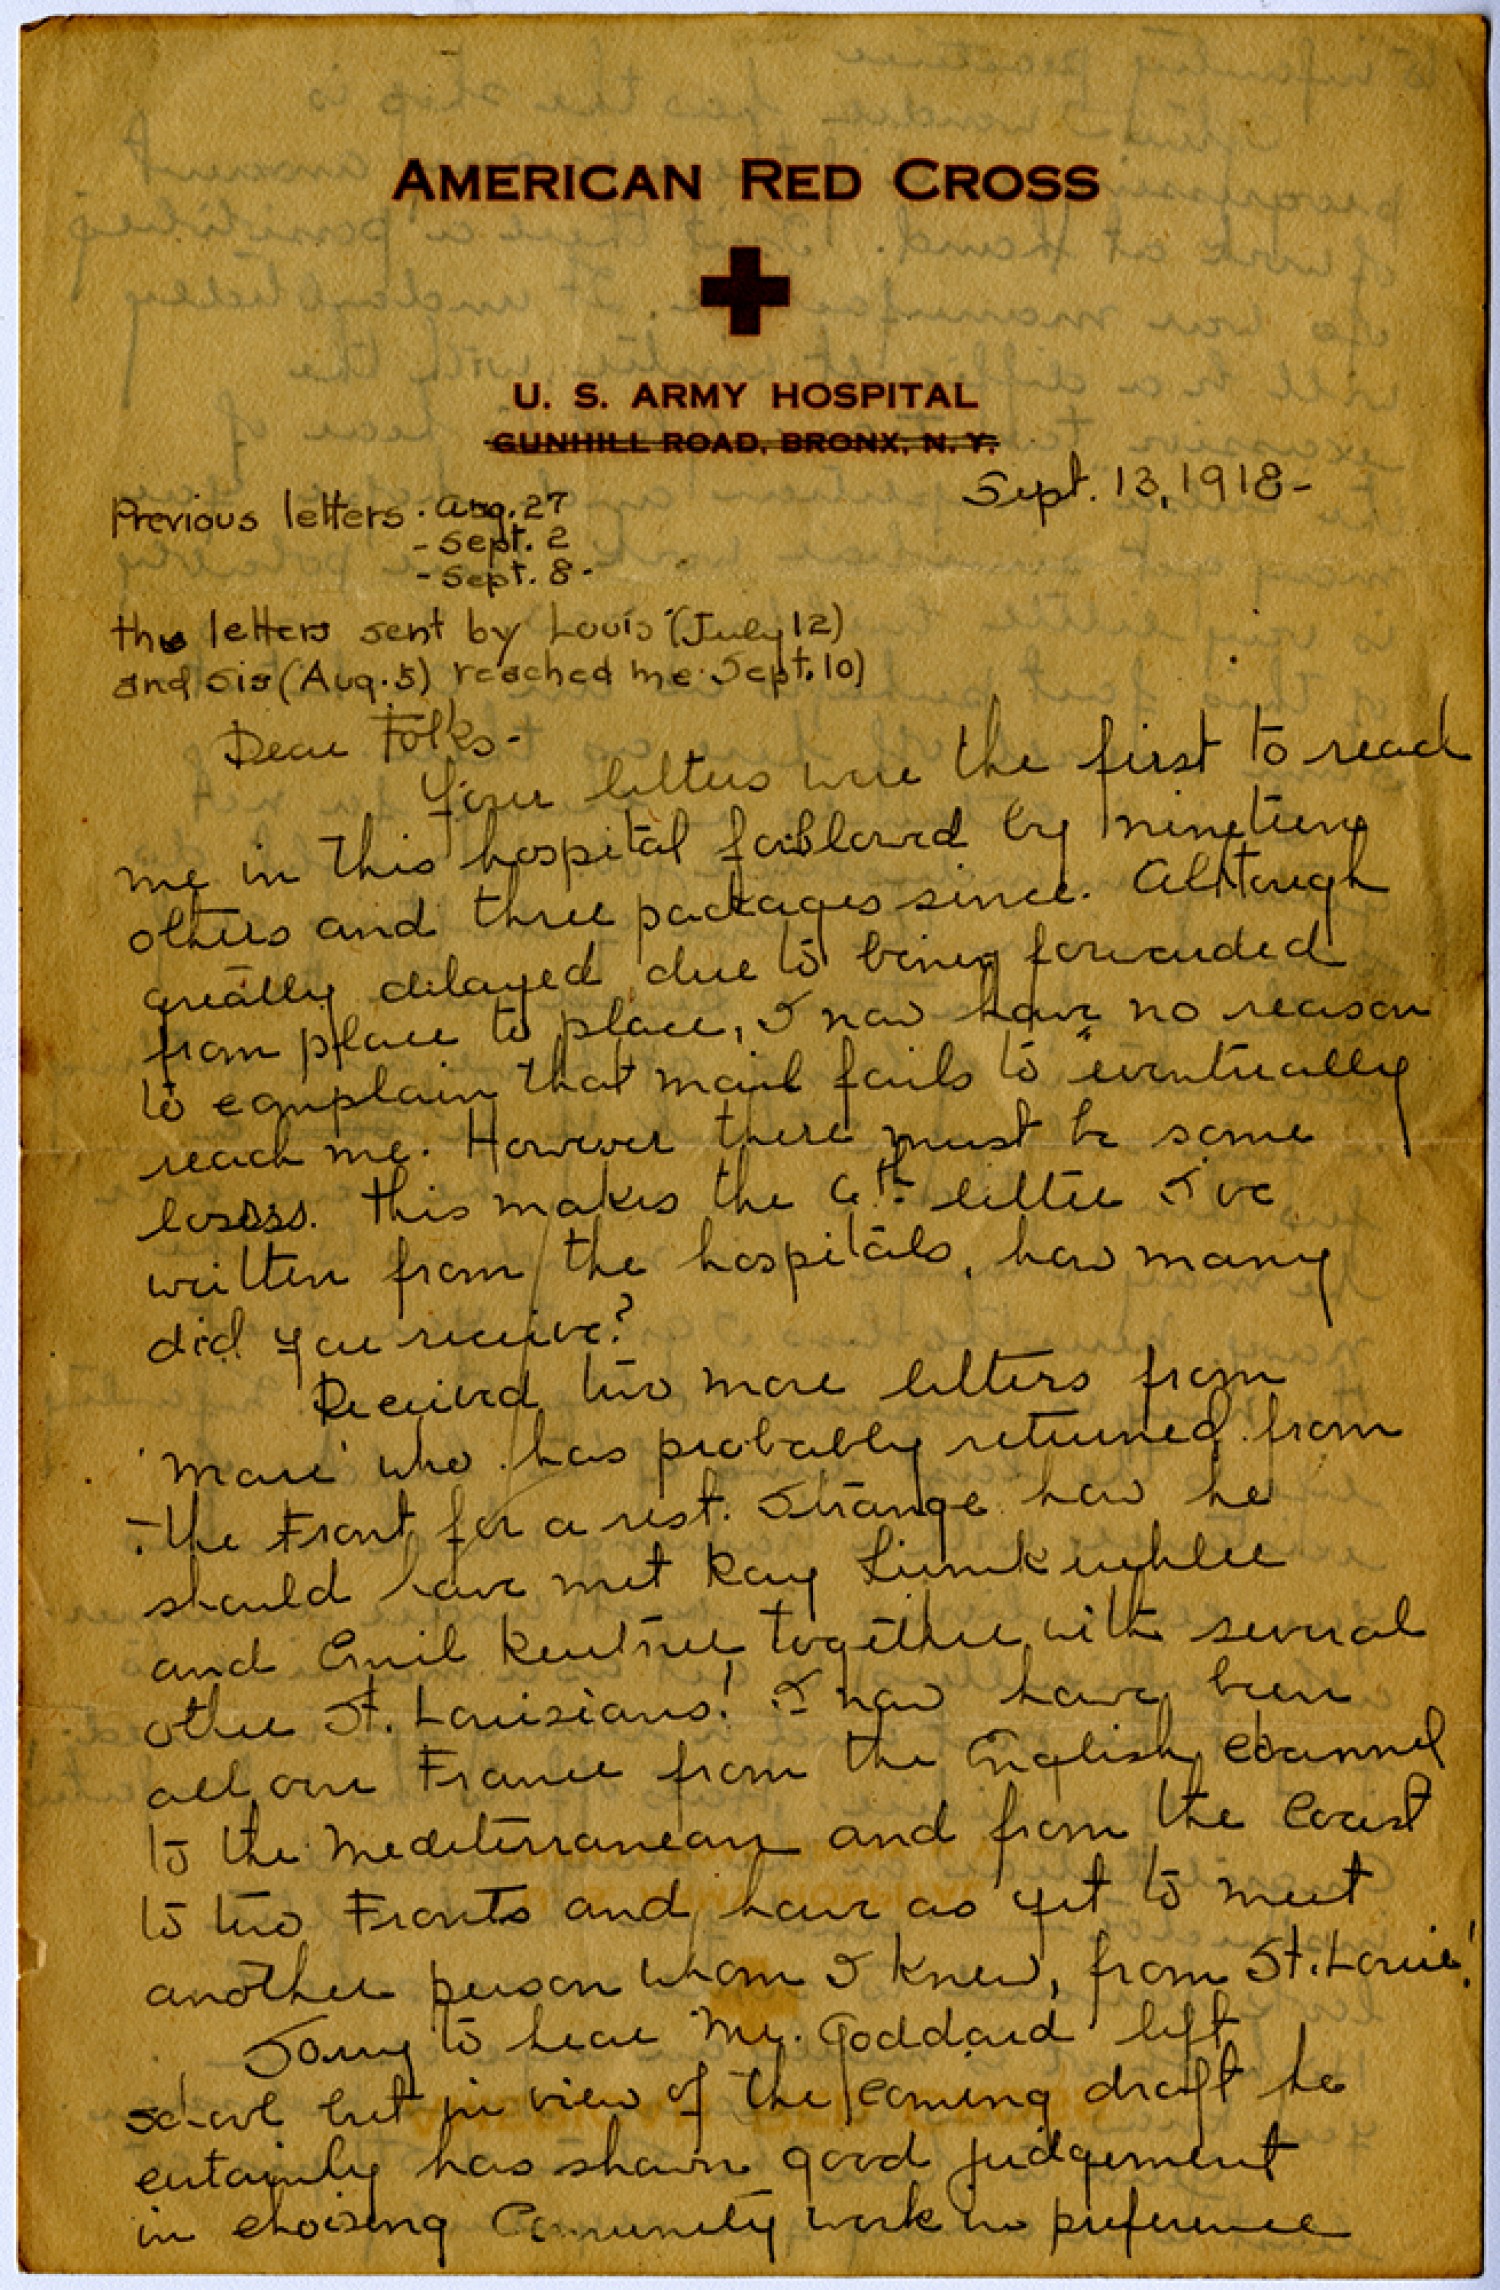 AMERICAN RED CROSS
U. S. ARMY HOSPITAL
GUNHILL ROAD, BRONX, N. Y.
Sept. 13, 1918-
Previous letters - Aug. 27
- Sept. 2
- Sept. 8 -
the letters sent by Louis (July 12)
and Sis (Aug. 5) reached me Sept. 10)
Dear Folks-
Your letters were the first to reach
me in this hospital followed by nineteen
others and three packages since. Although
greatly delayed due to being forwarded
from place to place, I now have no reason
to complain that mail fails to "eventually
reach me. However there must be some
losses. This makes the 6th letter I've
written from the hospitals, how many
did you receive?
Received two more letters from
who has probably returned from
the Front for a rest. Strange how he
should have met Ray
and Emil together with several
other St. Louisians! I now have been
all over France from the English Channel
to the Mediterranean and from the Coast
to two Fronts and have as yet to meet
another person whom I knew, from St. Louis!
Sorry to hear Mr. Goddard left
school but in view of the coming draft he
certainly has shown good judgement
in choising Comunity work in preference